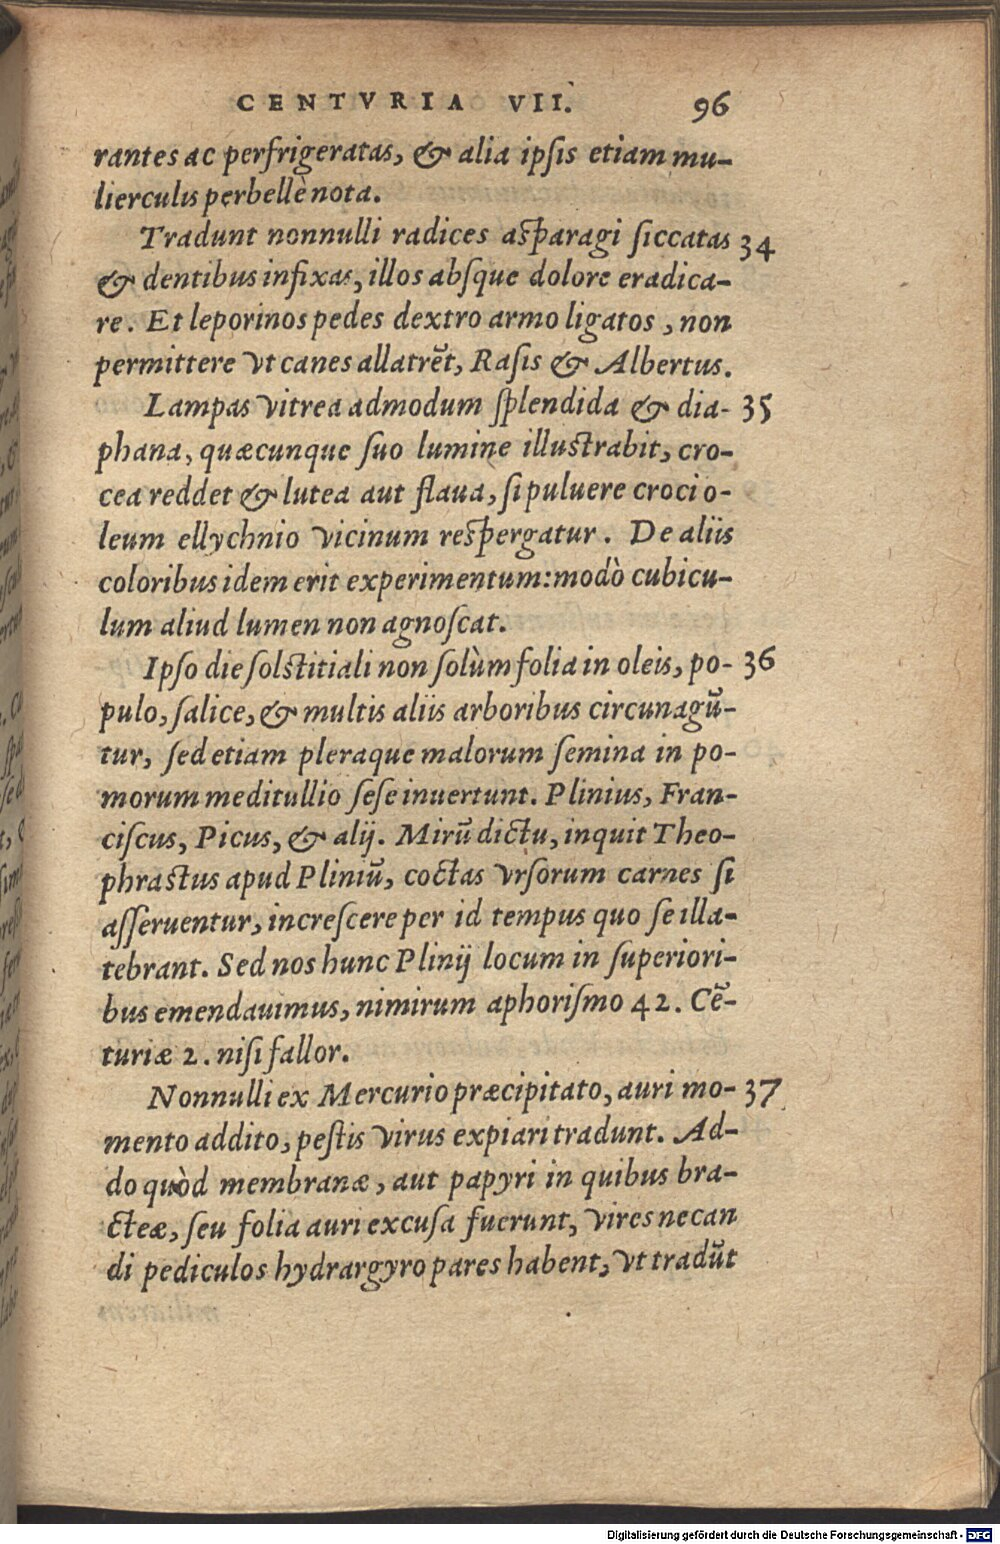 CENTVRIA VII. 96
rantes ac perfrigeratas, & alia ipſis etiam mu-
lierculis perbellè nota.
Tradunt nonnulli radices aſparagi ſiccatas 34
& dentibus infixas, illos abſque dolore eradica-
re. Et leporinos pedes dextro armo ligatos, non
permittere vt canes allatrēt, Raſis & Albertus.
Lampas vitrea admodum ſplendida & dia- 35
phana, quæcunque ſuo lumine illuſtrabit, cro-
cea reddet & lutea aut flaua, ſi puluere croci o-
leum ellychnio vicinum reſpergatur. De aliis
coloribus idem erit experimentum: modò cubicu-
lum aliud lumen non agnoſcat.
Ipſo die ſolſtitiali non ſolùm folia in oleis, po- 36
pulo, ſalice, & multis aliis arboribus circunagū-
tur, ſed etiam pleraque malorum ſemina in po-
morum meditullio ſeſe inuertunt. Plinius, Fran-
ciſcus, Picus, & alij. Mirū dictu, inquit Theo-
phraſtus apud Pliniū, coctas vrſorum carnes ſi
aſſeruentur, increſcere per id tempus quo ſe illa-
tebrant. Sed nos hunc Plinij locum in ſuperiori-
bus emendauimus, nimirum aphoriſmo 42. Cē-
turiæ 2. niſi fallor.
Nonnulli ex Mercurio præcipitato, auri mo- 37
mento addito, peſtis virus expiari tradunt. Ad-
do quòd membranæ, aut papyri in quibus bra-
cteæ, ſeu folia auri excuſa fuerunt, vires necan
di pediculos hydrargyro pares habent, vt tradūt
Digitalisierung gefördert durch die Deutsche Forschungsgemeinschaft - DFG